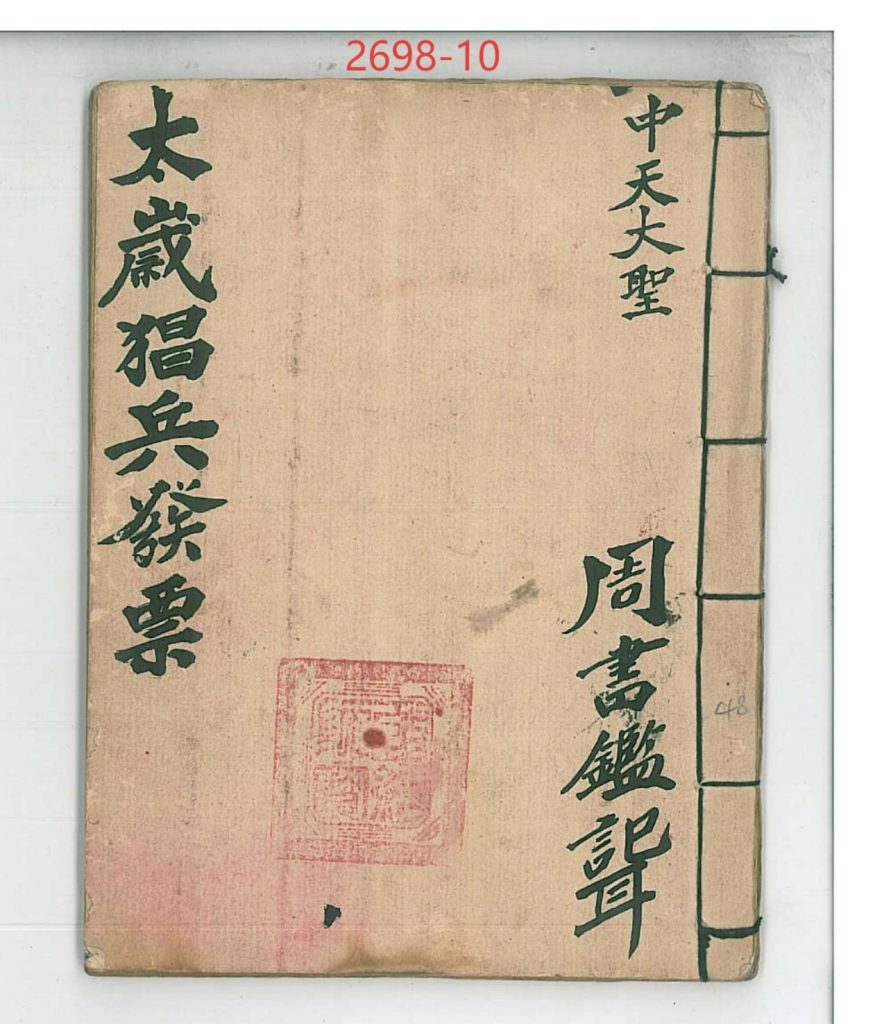 2698-10
中天大聖
周書鑑記耳
太歲猖兵發票
48